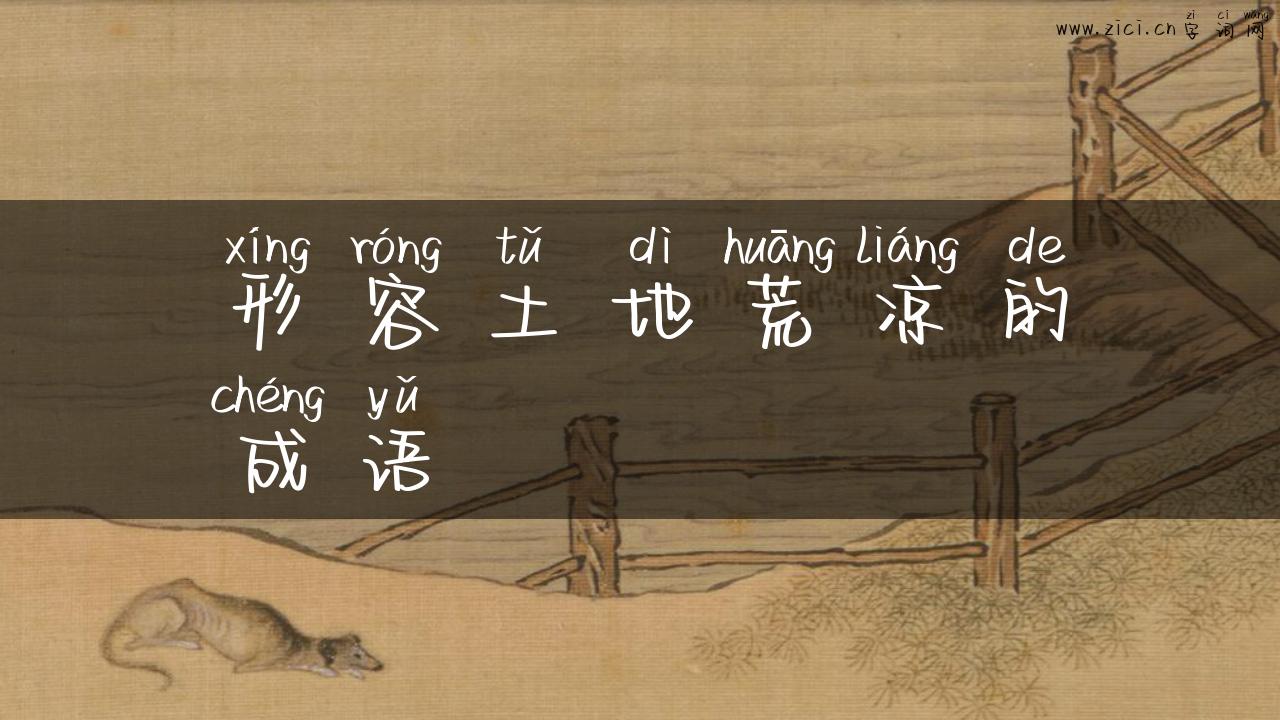 zì cí wǎng
www.zici.cn 字词网
xíng róng tǔ dì huāng liáng de
形容土地荒凉的
chéng yǔ
成语